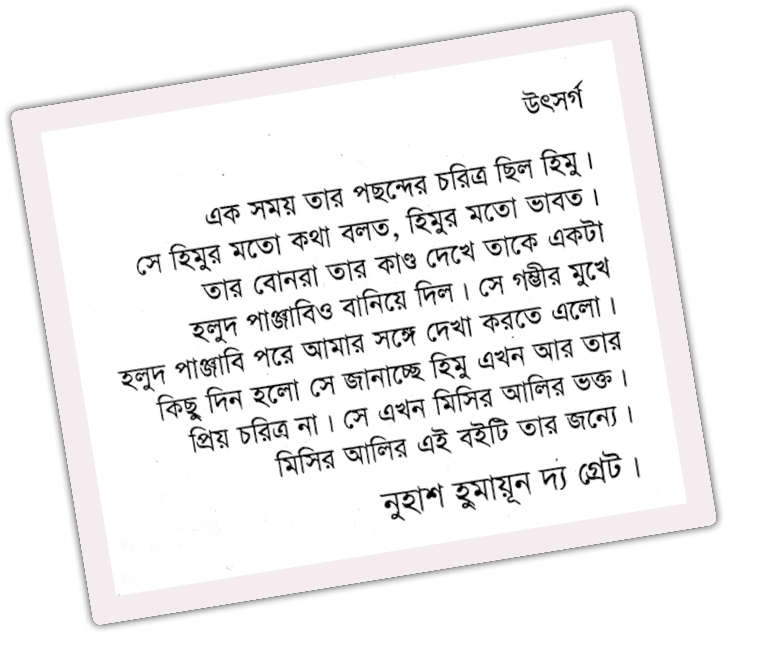 উৎসর্গ
এক সময় তার পছন্দের চরিত্র ছিল হিমু।
সে হিমুর মতো কথা বলত, হিমুর মতো ভাবত।
তার বোনরা তার কাণ্ড দেখে তাকে একটা
হলুদ পাঞ্জাবিও বানিয়ে দিল। সে গম্ভীর মুখে
হলুদ পাঞ্জাবি পরে আমার সঙ্গে দেখা করতে এলো।
কিছু দিন হলো সে জানাচ্ছে হিমু এখন আর তার
প্রিয় চরিত্র না। সে এখন মিসির আলির ভক্ত।
মিসির আলির এই বইটি তার জন্যে।
নুহাশ হুমায়ূন দ্য গ্রেট।